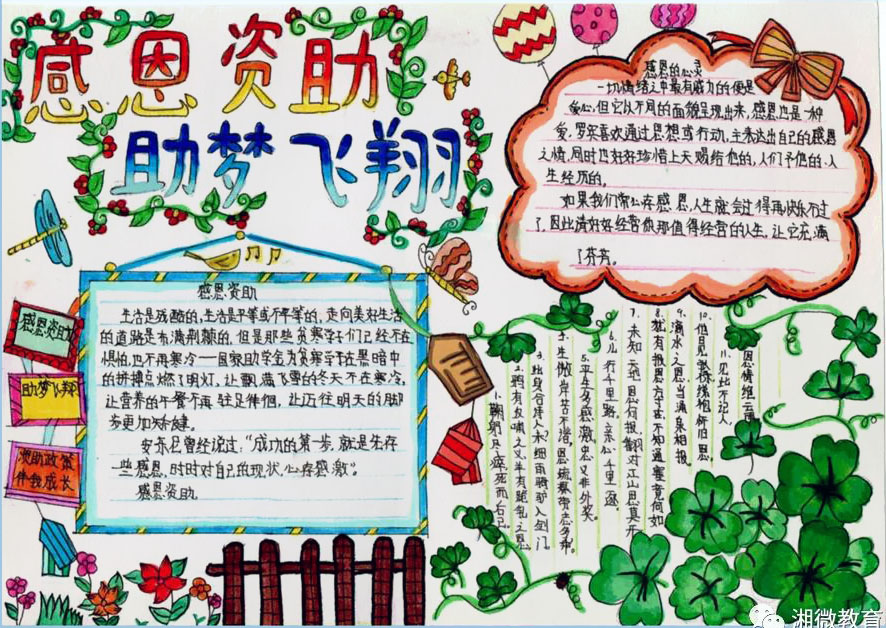 感恩资助
助梦飞翔
感恩的心灵
一切情绪之中最有威力的便是
爱心,但它以不同的面貌呈现出来,感恩也是一种
爱,罗宾喜欢通过思想或行动,主来达出自己的感恩
之情,同时也好好珍惜上天赐给他的,人们予他的,人
生经历的。
如果我们常心存感恩,人生就会过得再快乐不过
了,因此请好好经营你那值得经营的人生,让它充满
了芬芳。
感恩资助
生活是残酷的,生活是平等或不平等的,走向美好生活
的道路是布满荆棘的,但是那些贫寒学子们已经不在
惧怕,也不再寒冷——国家助学金为贫寒学子在黑暗中
的拼搏点燃了明灯,让飘满飞雪的冬天不在寒冷,
让营养的午餐不再驻足徘徊,让迈往明天的脚
步更加矫健。
安东尼曾经说过:“成功的第一步,就是先存
一些感恩,时时对自己的现状,心存感激”。
感恩资助。
感恩资助
助梦飞翔
资助政策
伴我成长
11.见此不记人
10.但见
9.滴水之恩,当涌泉相报。
8.若有报恩方
7.未知
6.儿行千里路,亲心千里逐。
5.平生多感激,忠义非外奖。
3.出身合
2.鸦有反哺之义,羊有跪乳之恩。
1.鞠躬尽瘁,死而后已。
湘微教育